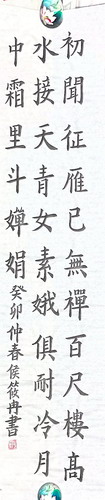 初聞征雁已無禪百尺樓高
水接天青女素娥俱耐冷月
中霜里斗嬋娟癸卯仲春侯筱冉書